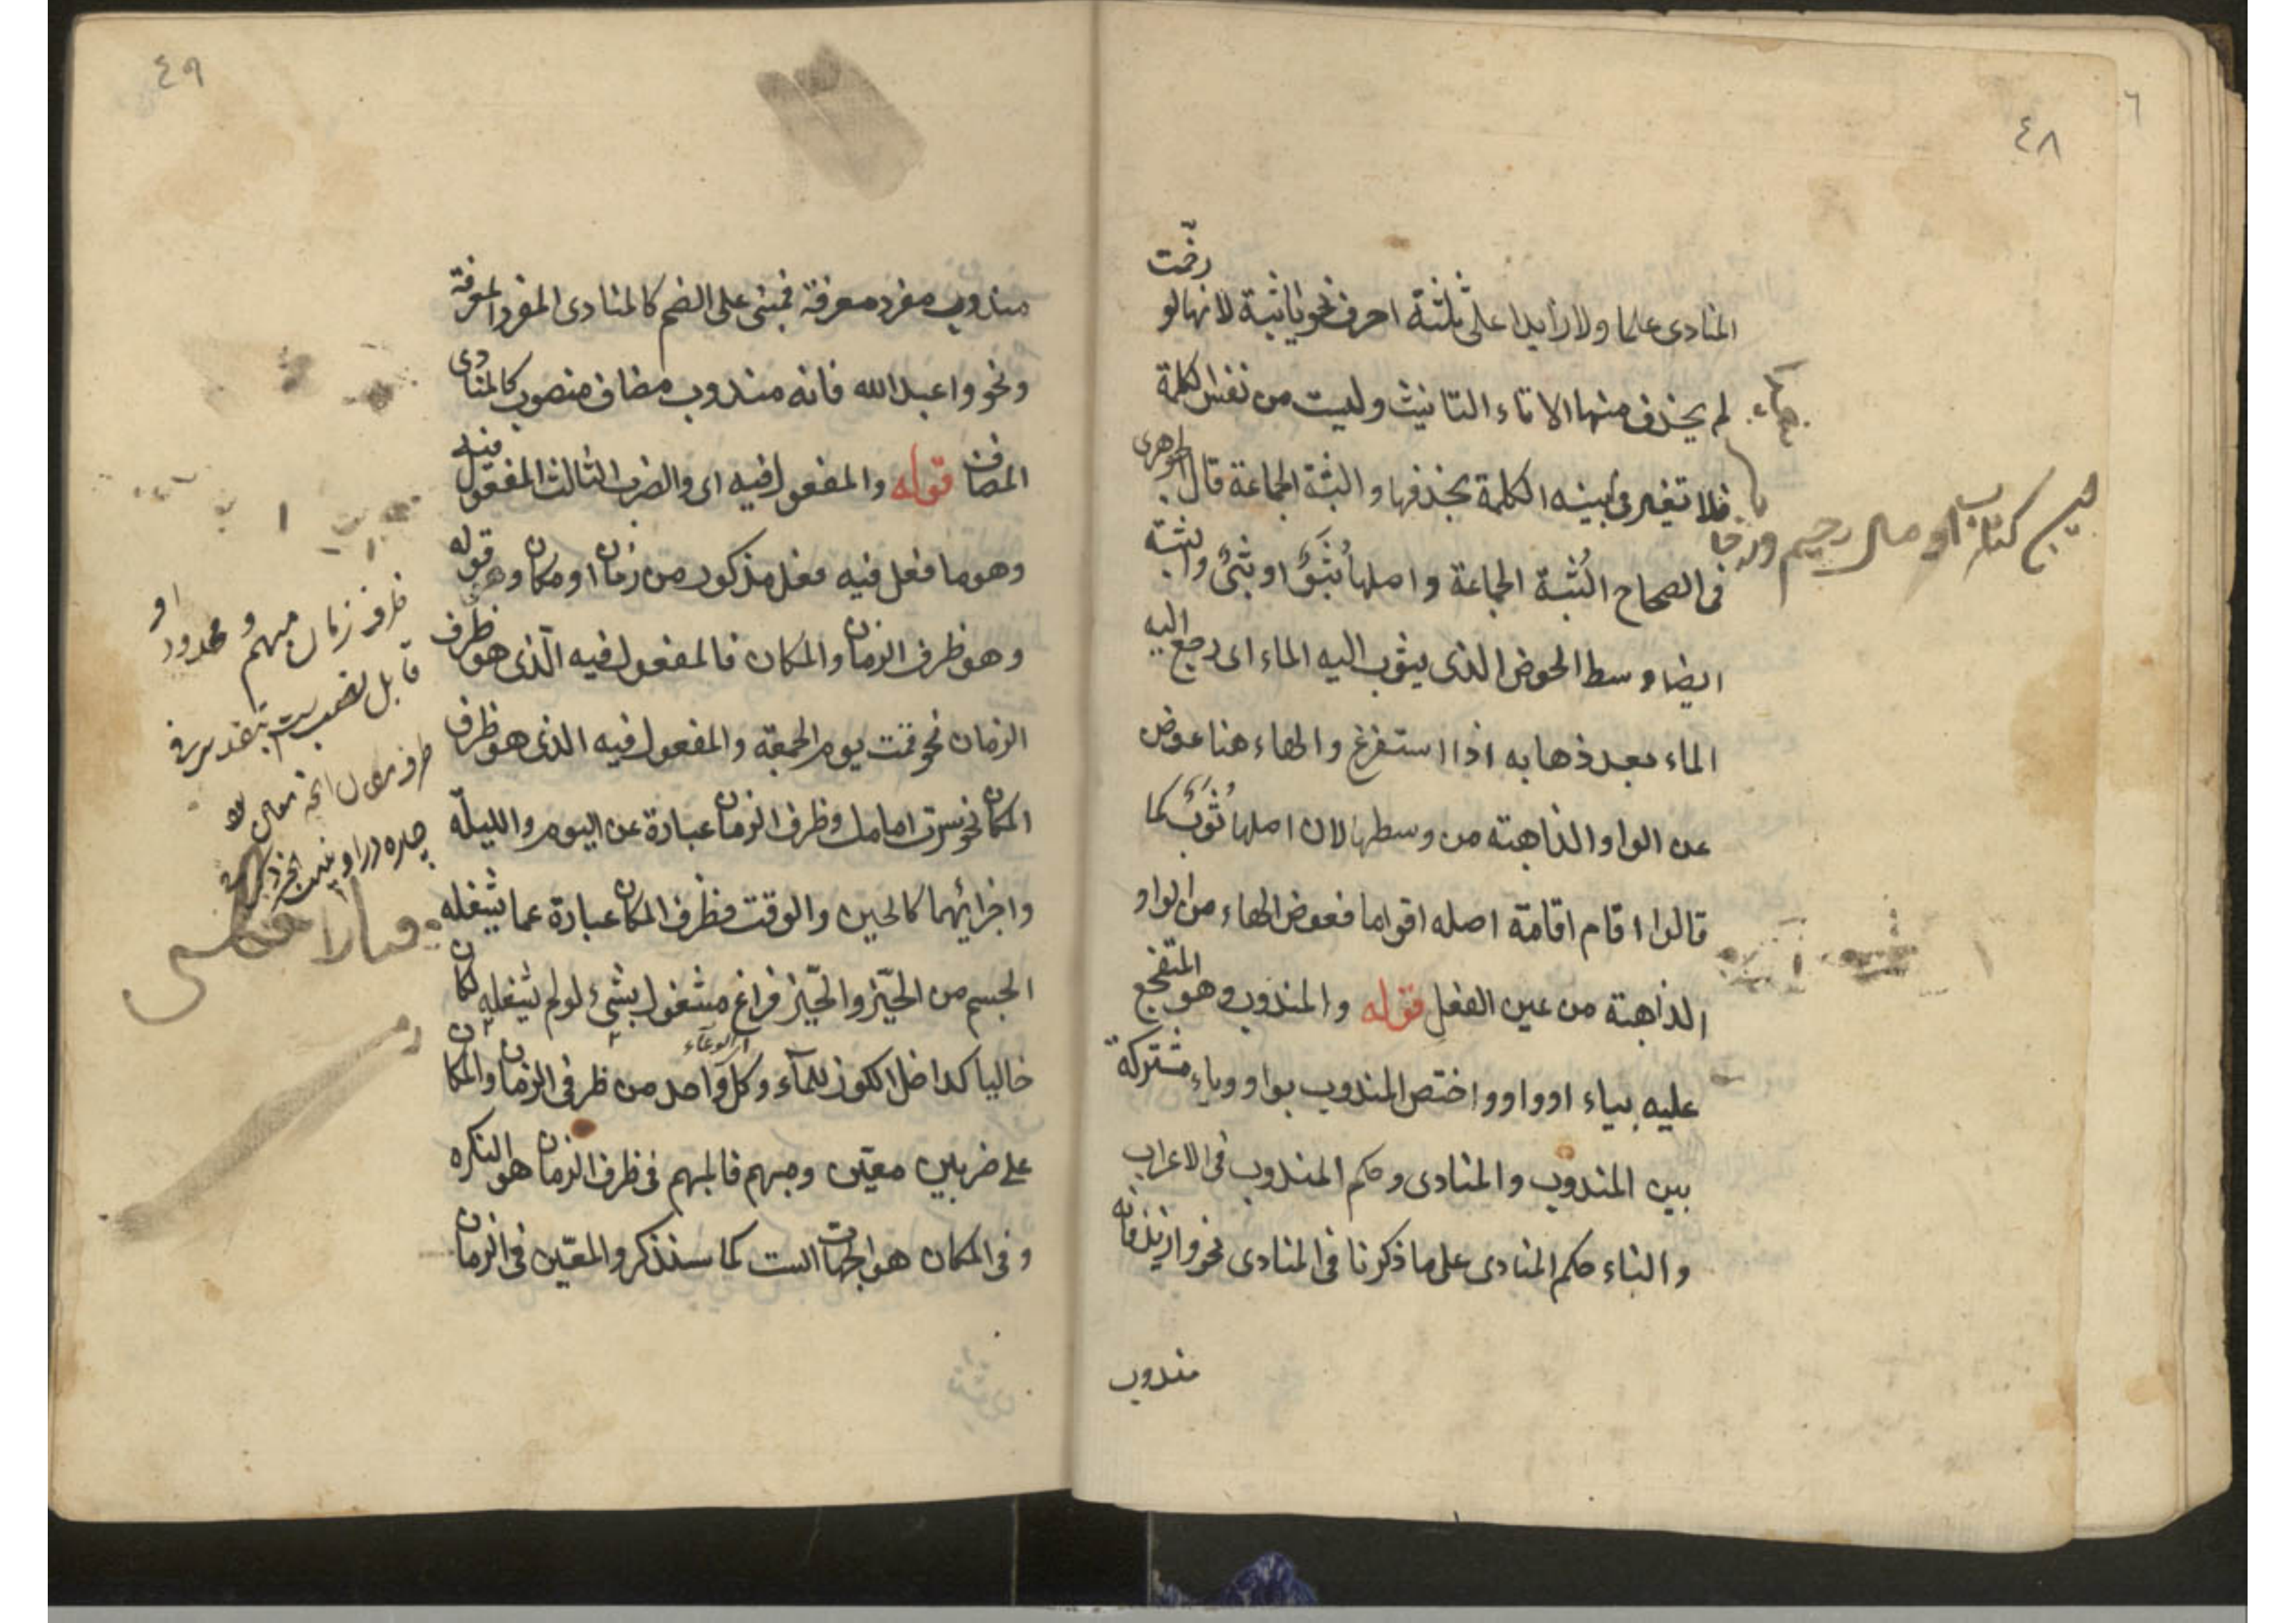 ٦
٤٨
المنادى علما ولا زايدا على ثلثة احرف نحو ياثبة لانها لو رخّمت
لم يحذف منها الا تاء التانيث وليست من نفس الكلمة
فلا تغير فى بنية الكلمة بحذفها والثبة الجماعة قال الجوهرى
فى الصحاح الثُبة الجماعة واصلها ثُبَوٌ او ثبىٌ والثبة
ايضا وسط الحوض الذى يثوب اليه الماء اى رجع اليه
الماء بعد ذهابه اذا استفرغ والهاء هنا عوض
عن الواو الذاهبة من وسطها لان اصلها ثُوَبٌ كما
قالوا اقام اقامة اصله اقواما فعوض الهاء من الواو
الذاهبة من عين الفعل قوله والمندوب وهو المتفجع
عليه بياء او واو واختص المندوب بواو وياء مشتركة
بين المندوب والمنادى وحكم المندوب فى الاعراب
والبناء حكم المنادى على ما ذكرنا فى المنادى نحو وازيد فانه
مندوب
كتاب او مال رحيم
٤٩
مندوب مفرد معرفة فبنى على الضم كالمنادى المفرد المعرفة
ونحو واعبد الله فانه مندوب مضاف منصوب كالمنادى
المضاف قوله والمفعول فيه اى والضرب الثالث المفعول فيه
وهو ما فعل فيه فعل مذكور من زمان او مكان وهو قوله
وهو ظرف الزمان والمكان فالمفعول فيه الّذى هو ظرف
الزمان نحو قمت يوم الجمعة والمفعول فيه الذى هو ظرف
المكان نحو سرت امامك وظرف الزمان عبارة عن اليوم والليلة
واجزائهما كالحين والوقت وظرف المكان عبارة عما يشغله
الجسم من الحيّز والحيّز فراغ مشغول بشئ لو لم يشغله لكان
خاليا كداخل الكوز للماء وكل واحد من ظرفى الزمان والمكان
اى الوعاء
على ضربين معيّن ومبهم فالمبهم فى ظرف الزمان هو النكره
وفى المكان هو الجهات الست كما سنذكر والمعيّن فى الزمان
ظرف زمان مبهم و محدود او
قابل نصب